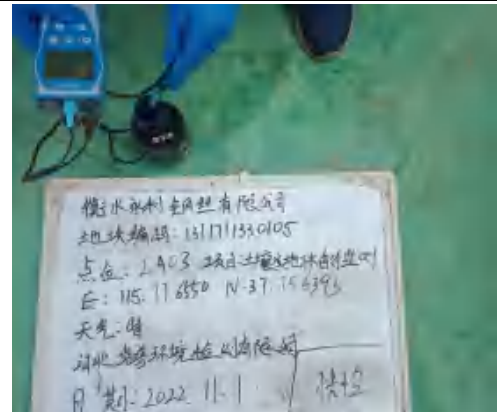 衡水永利塑胶有限公司
地块编码:1311711330105
点位:2A03 项目土壤及地下水自行监测
E:115.116550 N:37.756396
天气:晴
河北 环境检测有限公司
日期:2022.11.1 快检